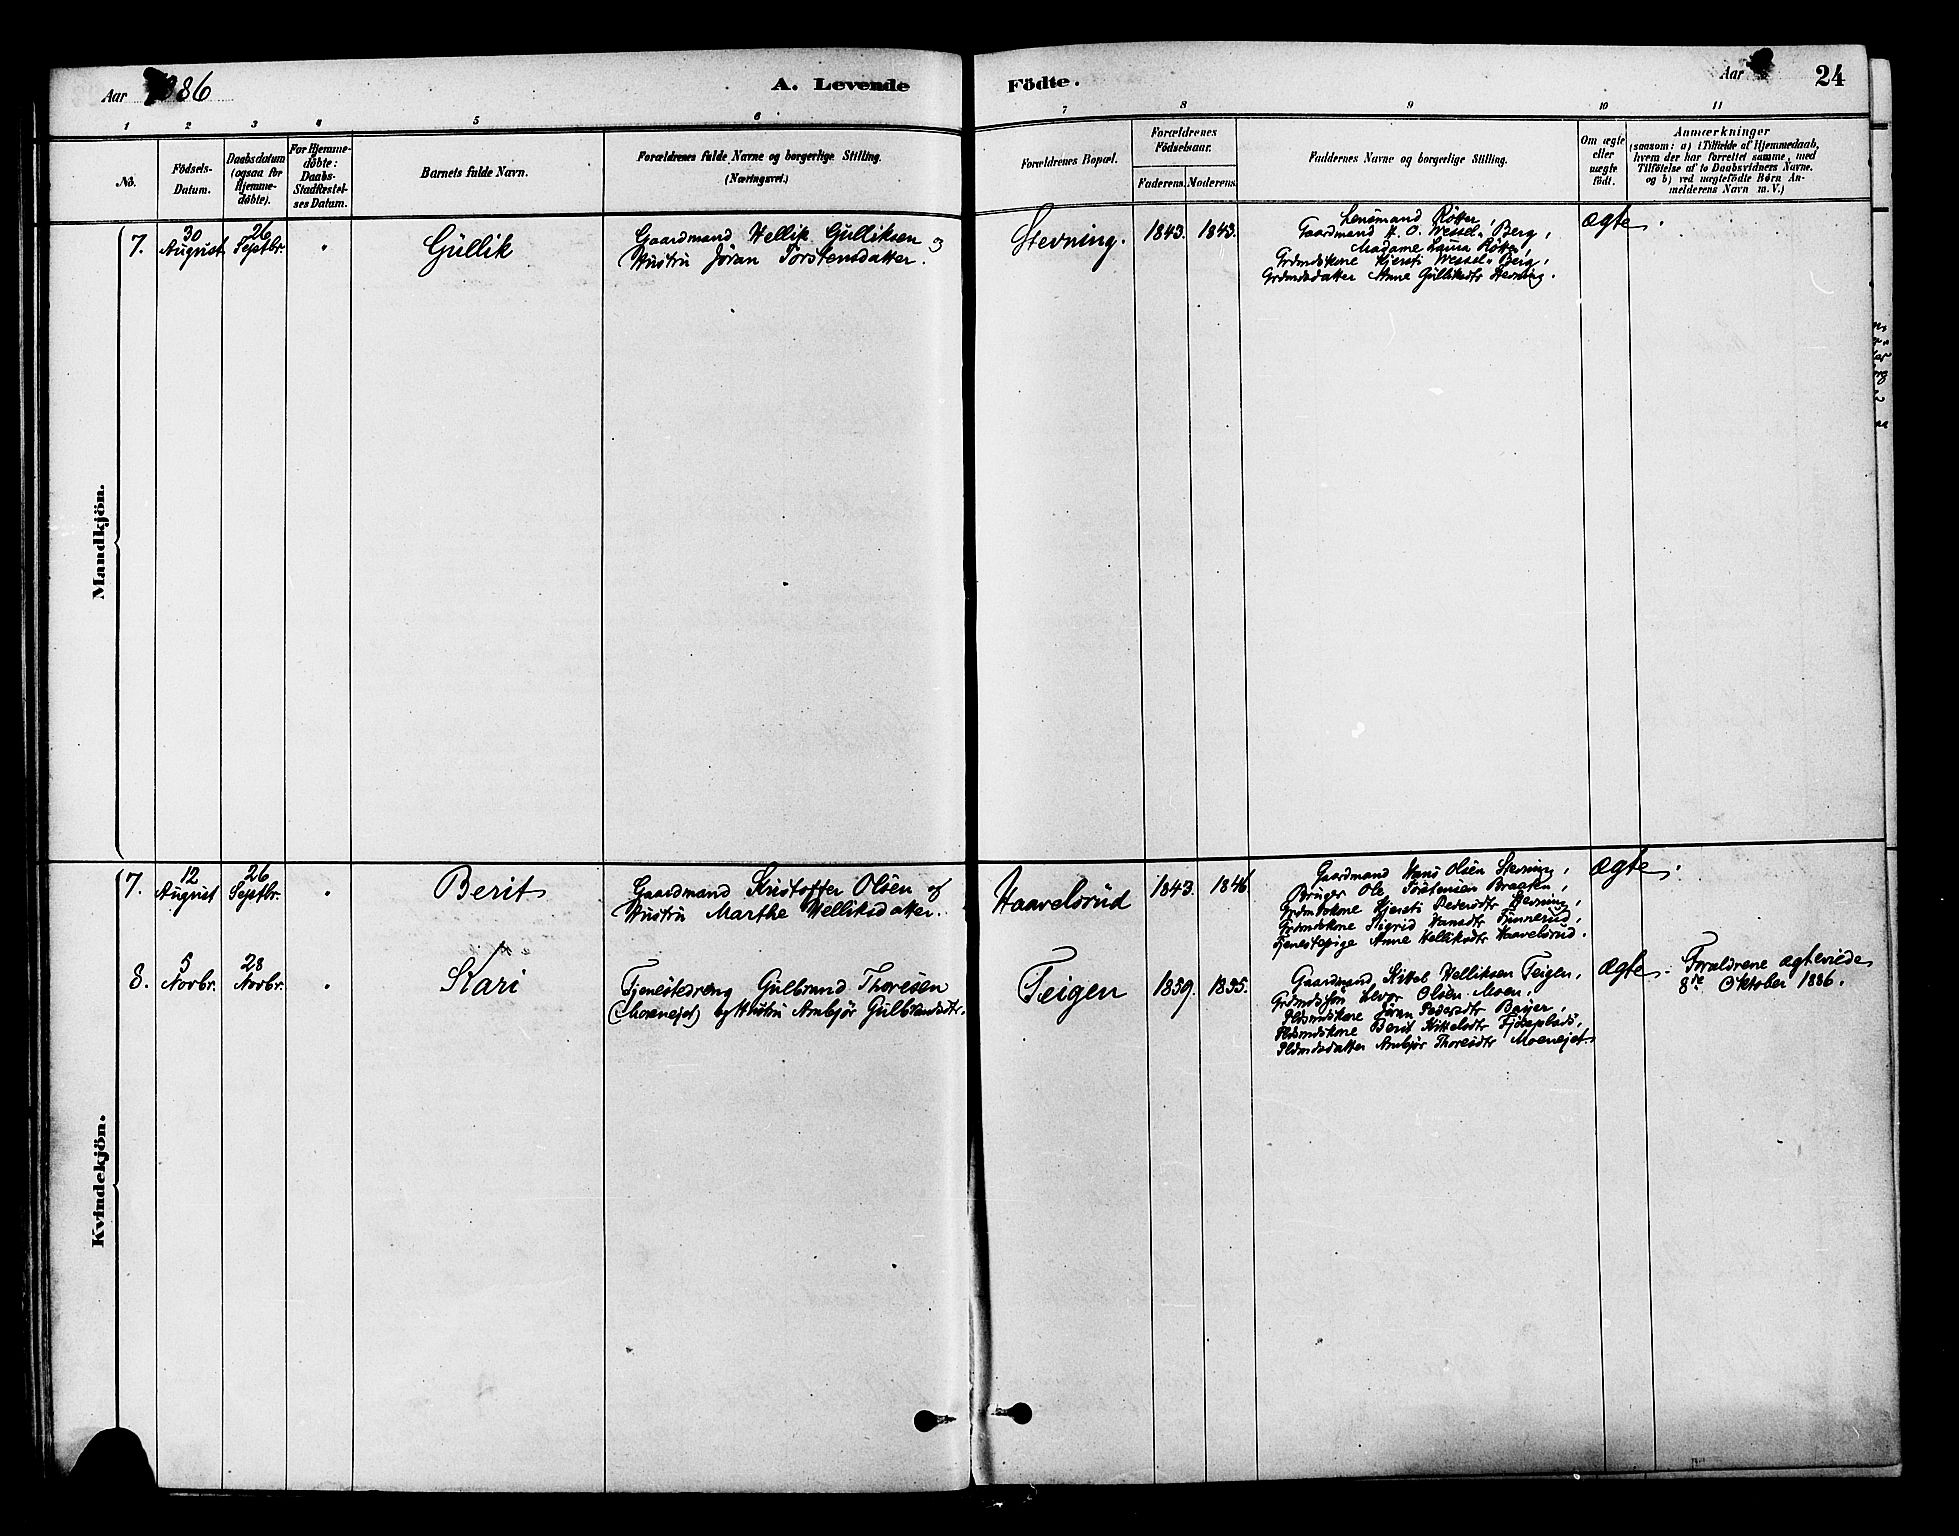 Aar 1886
A. Levende
Födte.
Aar
24
1 2 3 4 5 6 7 8 9 10 11
No.
Födsels-
Datum.
Daabsdatum
(ogsaa for
Hjemme-
döbte).
For Hjemme-
döbte:
Daabs-
Stadfæstel-
ses Datum.
Barnets fulde Navn.
Forældrenes fulde Navne og borgerlige Stilling.
(Næringsvei.)
Forældrenes Bopæl.
Forældrenes
Födselsaar.
Faderens. Moderens.
Faddernes Navne og borgerlige Stilling.
Om ægte
eller
uægte
födt.
Anmærkninger
(saasom: a) i Tilfælde af Hjemmedaab,
hvem der har forrettet samme, med
Tilföielse af to Daabsvidners Navne.
og b) ved uægtefödte Börn An-
melderens Navn m. V.)
Mandkjön.
7.
30
August
26
Septbr.
"
Gullik
Gaardmand Hellik Gulliksen og
Hustru Jöran Torstensdatter.
Stevning.
1843. 1843.
Lensmand Røtter,
Gaardmand H. O. Wessel-Berg,
Madame Laura Røtter,
Grdmdskone Kjersti Wessel-Berg,
Grdmdsdatter Anne Gulliksdtr Stevning.
ægte.
Kvindekjön.
7.
12
August
26
Septbr.
"
Berit
Gaardmand Kristoffer Olsen og
Hustru Marthe Helliksdatter.
Haavelsrud
1843. 1846.
Gaardmand Hans Olsen Stevning,
Bruger Ole Torstensen Braaten,
Grdmdskone Kjersti Pedersdtr Stevning,
Grdmdskone Sigrid Hansdtr Finnerud,
Tjenestepige Anne Helliksdtr Haavelsrud.
ægte.
8.
5
Novbr.
28
Novbr.
"
Kari
Tjenestedreng Gulbrand Thoresen
(Moenejet) og Hustru Ambjör Gulbrandsdtr.
Teigen
1859. 1855.
Gaardmand Kittel Helliksen Teigen,
Grdmdssön Levor Olsen Moen,
Pldsmdskone Jöran Pedersdtr Bøyer,
Pldsmdskone Berit Kittelsdtr
Pldmdsdatter Ambjör Thoresdtr Moenejet.
ægte.
Forældrene ægteviede
8de Oktober 1886.